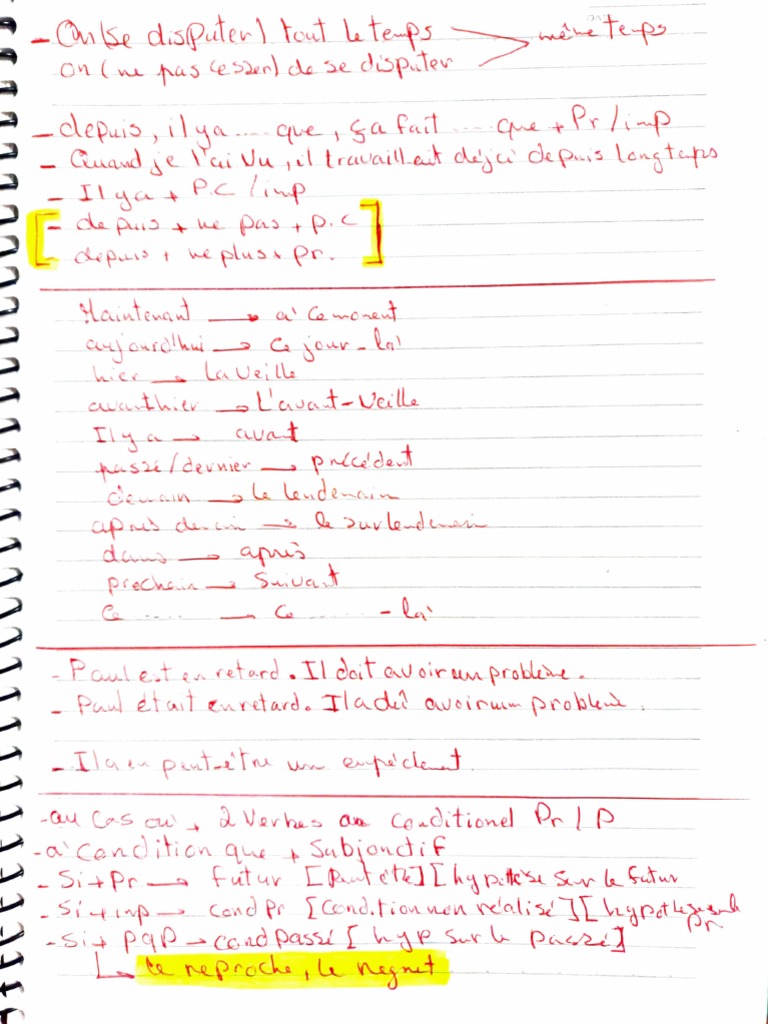 - On (se disputer) tout le temps
même temps
on (ne pas cesser) de se disputer
- depuis, il y a .... que, ça fait .... que + Pr / imp
- Quand je l'ai vu, il travaillait déjà depuis longtemps
- Il y a + P.C / imp
- depuis + ne pas + p.c
depuis + ne plus + pr.
Maintenant → à ce moment
aujourd'hui → ce jour-là
hier → la veille
avant hier → L'avant-veille
Il y a → avant
passé/dernier → précédent
demain → le lendemain
après demain → le surlendemain
dans → après
prochain → suivant
Ce ..... → Ce ...... -là
- Paul est en retard. Il doit avoir un problème.
- Paul était en retard. Il a dû avoir un problème.
- Il a eu peut-être un empêchement.
- au cas où + 2 verbes au conditionel Pr / P
- à condition que + Subjonctif
- Si + Pr → futur [hypothèse sur le futur
- Si + imp → cond Pr [Condition non réalisé] [hypothèse sur le Pr
- Si + pqp → cond passé [hyp sur le passé]
↳ le reproche, le regret